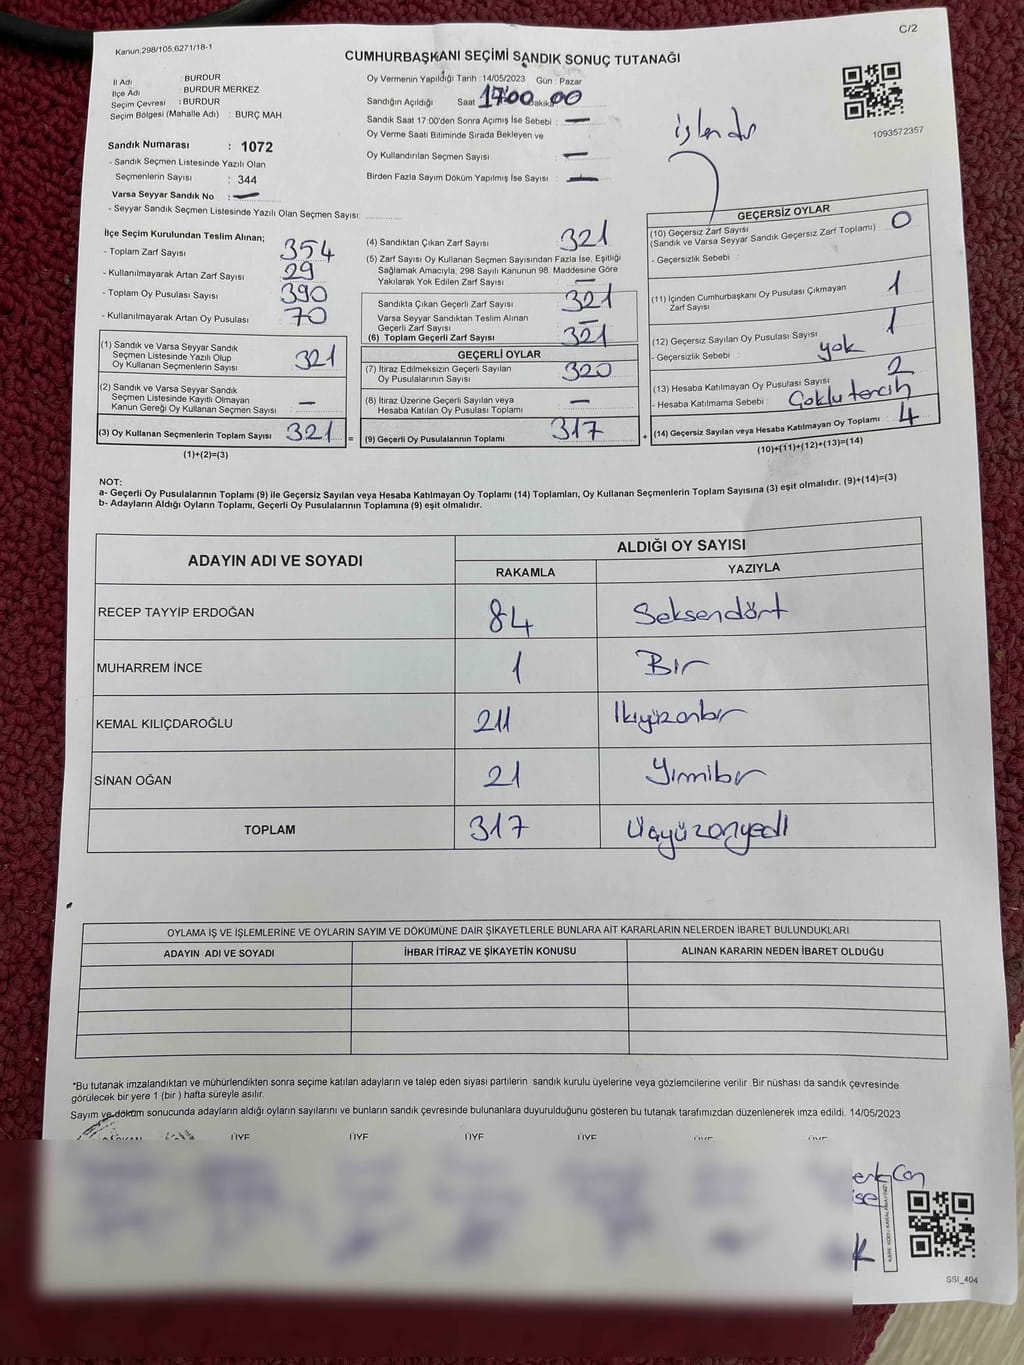 Kanun:298/105,6271/18-1
C/2
CUMHURBAŞKANI SEÇİMİ SANDIK SONUÇ TUTANAĞI
İl Adı : BURDUR
İlçe Adı : BURDUR MERKEZ
Seçim Çevresi : BURDUR
Seçim Bölgesi (Mahalle Adı) : BURÇ MAH.
Sandık Numarası : 1072
- Sandık Seçmen Listesinde Yazılı Olan
Seçmenlerin Sayısı : 344
Varsa Seyyar Sandık No : —
- Seyyar Sandık Seçmen Listesinde Yazılı Olan Seçmen Sayısı:
Oy Vermenin Yapıldığı Tarih : 14/05/2023 Gün : Pazar
Sandığın Açıldığı Saat 17:00 Dakika 00
Sandık Saat 17:00'den Sonra Açılmış İse Sebebi : —
Oy Verme Saati Bitiminde Sırada Bekleyen ve
Oy Kullandırılan Seçmen Sayısı : —
Birden Fazla Sayım Döküm Yapılmış İse Sayısı : —
işlendi
1093572357
İlçe Seçim Kurulundan Teslim Alınan;
- Toplam Zarf Sayısı : 354
- Kullanılmayarak Artan Zarf Sayısı : 29
- Toplam Oy Pusulası Sayısı : 390
- Kullanılmayarak Artan Oy Pusulası : 70
(1) Sandık ve Varsa Seyyar Sandık
Seçmen Listesinde Yazılı Olup
Oy Kullanan Seçmenlerin Sayısı : 321
(2) Sandık ve Varsa Seyyar Sandık
Seçmen Listesinde Kayıtlı Olmayan
Kanun Gereği Oy Kullanan Seçmen Sayısı : —
(3) Oy Kullanan Seçmenlerin Toplam Sayısı : 321 =
(1)+(2)=(3)
(4) Sandıktan Çıkan Zarf Sayısı : 321
(5) Zarf Sayısı Oy Kullanan Seçmen Sayısından Fazla İse, Eşitliği
Sağlamak Amacıyla, 298 Sayılı Kanunun 98. Maddesine Göre
Yakılarak Yok Edilen Zarf Sayısı : —
Sandıkta Çıkan Geçerli Zarf Sayısı : 321
Varsa Seyyar Sandıktan Teslim Alınan
Geçerli Zarf Sayısı : —
(6) Toplam Geçerli Zarf Sayısı : 321
GEÇERLİ OYLAR
(7) İtiraz Edilmeksizin Geçerli Sayılan
Oy Pusulalarının Sayısı : 320
(8) İtiraz Üzerine Geçerli Sayılan veya
Hesaba Katılan Oy Pusulası Toplamı : —
(9) Geçerli Oy Pusulalarının Toplamı : 317 +
GEÇERSİZ OYLAR
(10) Geçersiz Zarf Sayısı
(Sandık ve Varsa Seyyar Sandık Geçersiz Zarf Toplamı) : 0
- Geçersizlik Sebebi :
(11) İçinden Cumhurbaşkanı Oy Pusulası Çıkmayan
Zarf Sayısı : 1
(12) Geçersiz Sayılan Oy Pusulası Sayısı : 1
- Geçersizlik Sebebi : yok
(13) Hesaba Katılmayan Oy Pusulası Sayısı : 2
- Hesaba Katılmama Sebebi : Çoklu tercih
(14) Geçersiz Sayılan veya Hesaba Katılmayan Oy Toplamı : 4
(10)+(11)+(12)+(13)=(14)
NOT:
a- Geçerli Oy Pusulalarının Toplamı (9) ile Geçersiz Sayılan veya Hesaba Katılmayan Oy Toplamı (14) Toplamları, Oy Kullanan Seçmenlerin Toplam Sayısına (3) eşit olmalıdır. (9)+(14)=(3)
b- Adayların Aldığı Oyların Toplamı, Geçerli Oy Pusulalarının Toplamına (9) eşit olmalıdır.
ADAYIN ADI VE SOYADI
ALDIĞI OY SAYISI
RAKAMLA YAZIYLA
RECEP TAYYİP ERDOĞAN 84 Seksendört
MUHARREM İNCE 1 Bir
KEMAL KILIÇDAROĞLU 211 İkiyüzonbir
SİNAN OĞAN 21 Yirmibir
TOPLAM 317 Üçyüzonyedi
OYLAMA İŞ VE İŞLEMLERİNE VE OYLARIN SAYIM VE DÖKÜMÜNE DAİR ŞİKAYETLERLE BUNLARA AİT KARARLARIN NELERDEN İBARET BULUNDUKLARI
ADAYIN ADI VE SOYADI İHBAR İTİRAZ VE ŞİKAYETİN KONUSU ALINAN KARARIN NEDEN İBARET OLDUĞU
*Bu tutanak imzalandıktan ve mühürlendikten sonra seçime katılan adayların ve talep eden siyasi partilerin sandık kurulu üyelerine veya gözlemcilerine verilir .Bir nüshası da sandık çevresinde
görülecek bir yere 1 (bir ) hafta süreyle asılır.
Sayım ve döküm sonucunda adayların aldığı oyların sayılarını ve bunların sandık çevresinde bulunanlara duyurulduğunu gösteren bu tutanak tarafımızdan düzenlenerek imza edildi. 14/05/2023
BAŞKAN ÜYE ÜYE ÜYE ÜYE ÜYE ÜYE
SSI_404